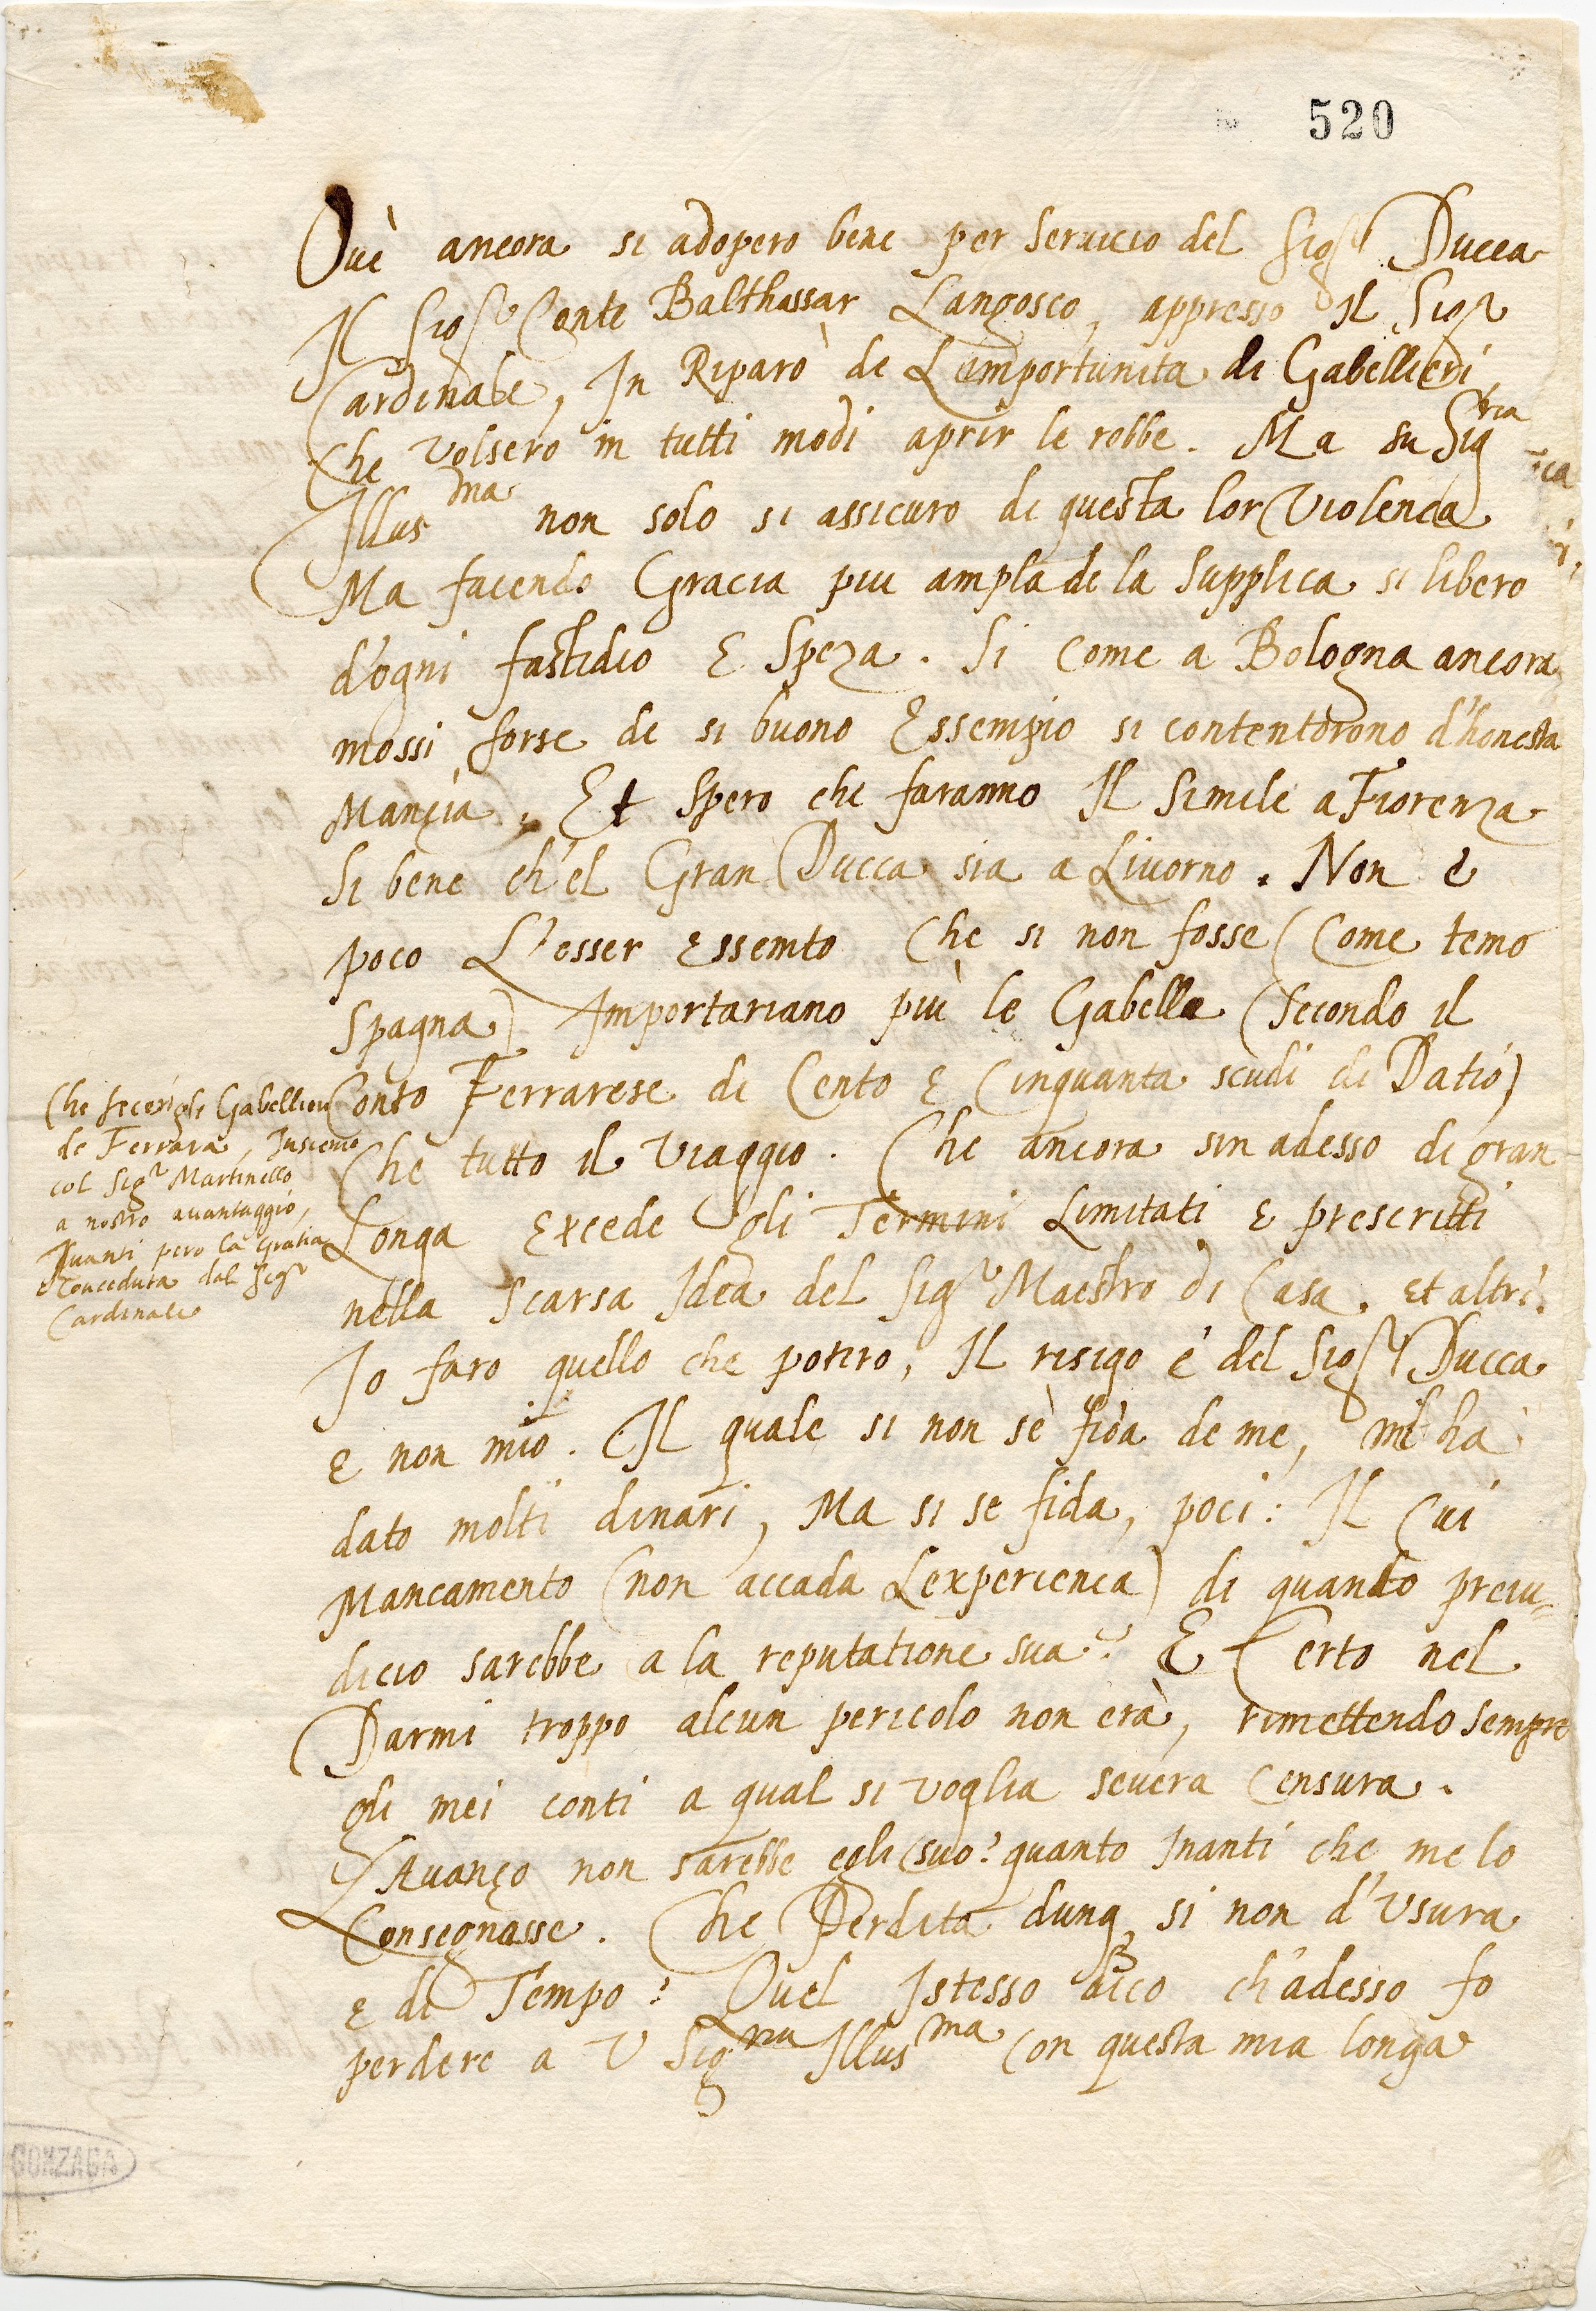 520
Ove ancora si adopero bene per servicio del Sigr Ducca
Il Sigr Conte Balthassar Langosco, appresso Il Sigr
Cardinale, In Riparo de L'importunita di Gabellieri
Che volsero in tutti modi aprir le robbe. Ma su Sigria
Illusma non solo si assicuro di questa lor Violenca
Ma facendo Gracia piu ampla de la supplica si libero
d'ogni fastidio E Speza. Si Come a Bologna ancora
mossi forse de si buono Essempio si contentorono d'honesta
Mançia. Et Spero che faranno Il Simile a Fiorenza
Si bene ch'el Gran Ducca sia a Livorno. Non è
poco L'esser Essemto Che si non fosse (Come temo
Spagna) Importariano più le Gabelle (Secondo il
Conto Ferrarese di Cento E Cinquanta scudi di Datio)
Che fecer gli Gabellieri
de Ferrara, Insieme
col Sigr Martinello
a nostro avantaggio,
Avanti pero la Gratia
Conceduta dal Sigr
Cardinale
Che tutto il Viaggio. Che ancora sin adesso di gran
Longa Excede gli Termini Limitati E prescritti
nella Scarsa Idea del Sigr Maestro di Casa. Et altri.
Io faro quello che potro, Il risigo è del Sigr Ducca
E non mio. Il quale si non se fida de me, mi ha
dato molti dinari, Ma si se fida, poci: Il Cui
Mancamento (non accada L'experienca) di quanto preiu=
dicio sarebbe a la reputatione sua? E Certo nel
Darmi troppo alcun pericolo non era, rimettendo sempre
gli mei conti a qual si voglia severa Censura.
L'Avanço non sarebbe egli suo? quanto Inanti che me lo
Consegnasse. Che Perdita dunq si non d'Usura
E di Tempo? Quel Istesso dico ch'adesso fo
perdere a V Sigria Illusma Con questa mia longa
GONZAGA